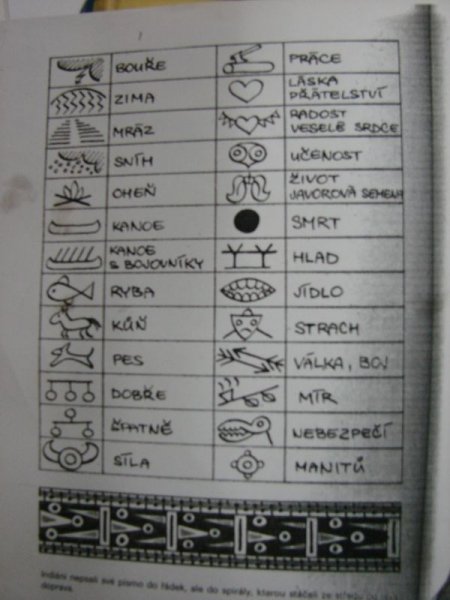 BOUŘE
ZIMA
MRÁZ
SNÍH
OHEŇ
KANOE
KANOE
S BOJOVNÍKY
RYBA
KŮŇ
PES
DOBŘE
ŠPATNĚ
SÍLA
PRÁCE
LÁSKA
PŘÁTELSTVÍ
RADOST
VESELÉ SRDCE
UČENOST
ŽIVOT
JAVOROVÁ SEMENA
SMRT
HLAD
JÍDLO
STRACH
VÁLKA, BOJ
MÍR
NEBEZPEČÍ
MANITŮ
Indiáni nepsali své písmo do řádek, ale do spirály, kterou stáčeli ze středu
doprava.